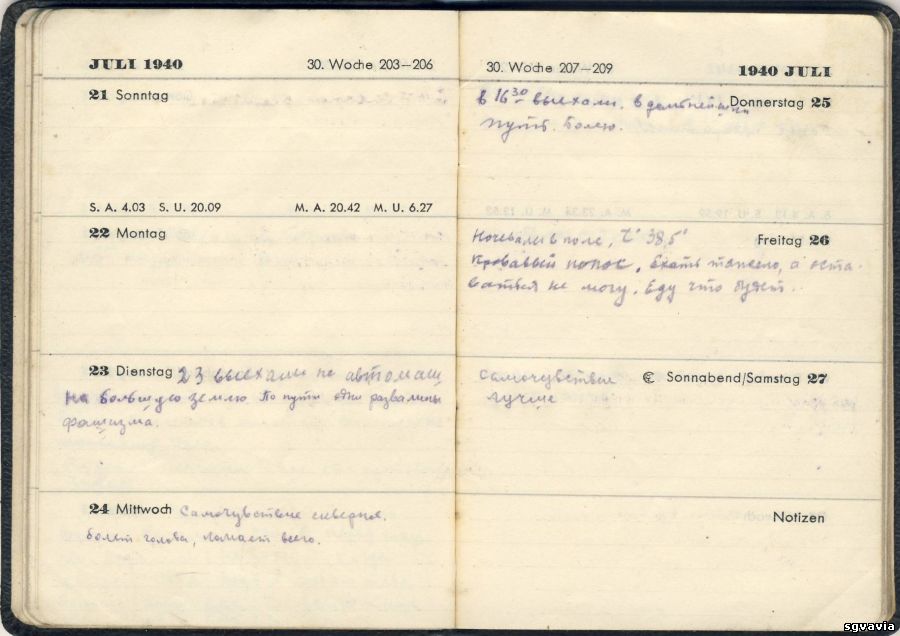 JULI 1940
30. Woche 203—206
21 Sonntag
S. A. 4.03 S. U. 20.09 M. A. 20.42 M. U. 6.27
22 Montag
23 Dienstag 23 выехали на автомаш
на большую землю. По пути одни развалины
фашизма.
24 Mittwoch Самочувствие скверное.
болит голова, ломает всего.
30. Woche 207—209
1940 JULI
Donnerstag 25
в 16³⁰ выехали. в дальнейший
путь. Болею.
Freitag 26
Ночевали в поле, t° 38,5°
Кровавый понос. Ехать тяжело, а оста-
ваться не могу. Еду что будет.
Sonnabend/Samstag 27
Самочувствие
лучше
Notizen
sgvavia